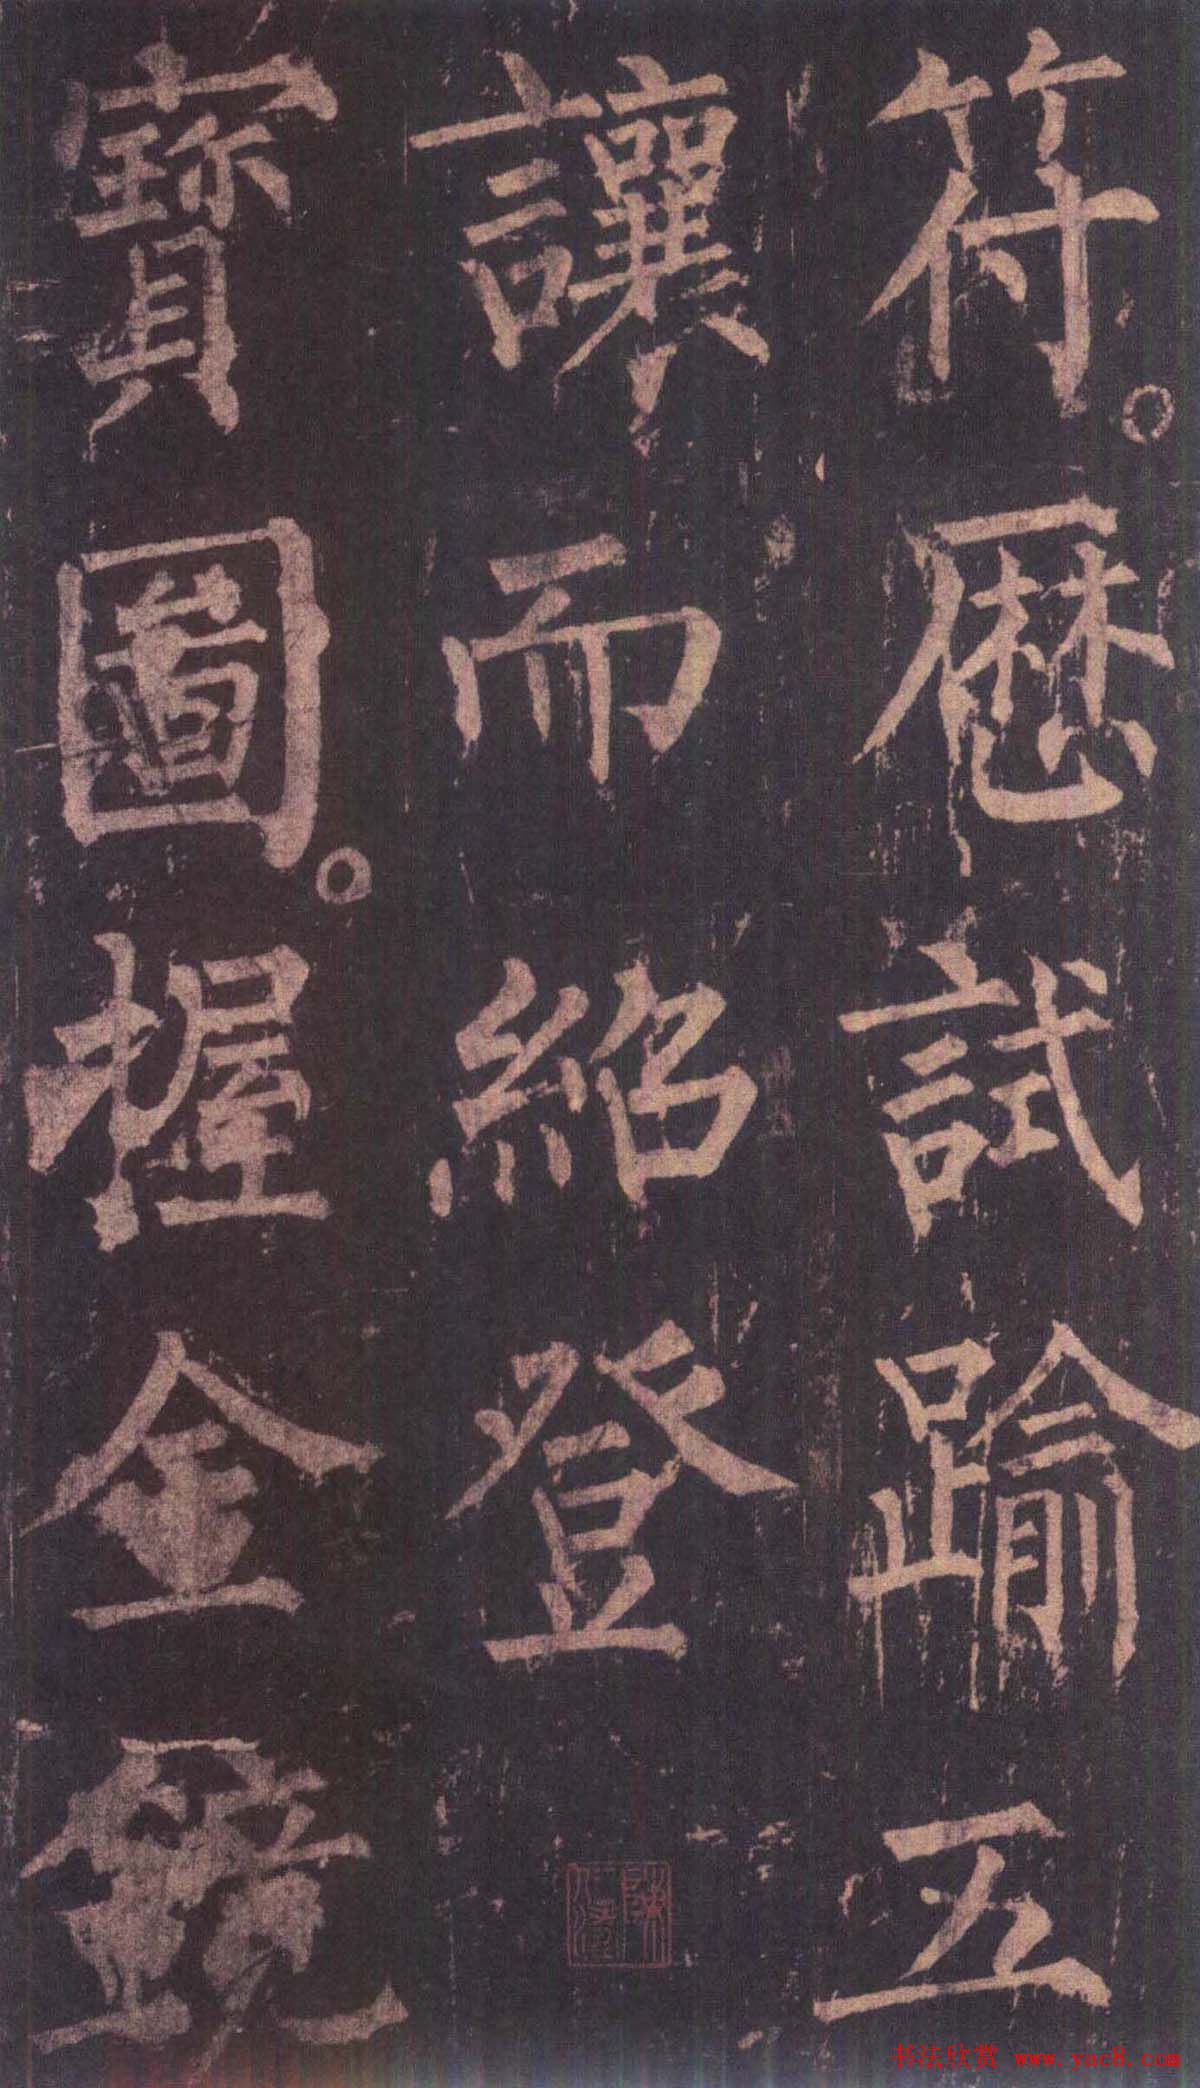 符。歷試踰五
讓而紹登
寶圖。握金鏡
书法欣赏 www.yac8.com